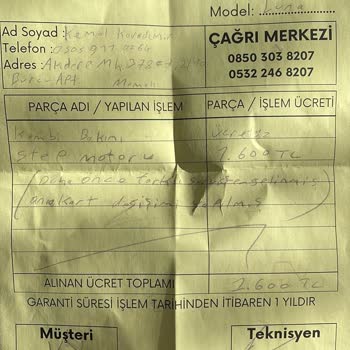 Model: Luna
Ad Soyad : Kemal
Telefon :
Adres :
ÇAĞRI MERKEZİ
0850 303 8207
0532 246 8207
PARÇA ADI / YAPILAN İŞLEM PARÇA / İŞLEM ÜCRETİ
Kombi Bakımı Ücretsiz
Step motoru 1.600 TL
(Daha önce farklı servis gelmiş
anakart değişimi yapılmış)
ALINAN ÜCRET TOPLAMI 1.600 TL
GARANTİ SÜRESİ İŞLEM TARİHİNDEN İTİBAREN 1 YILDIR
Müşteri Teknisyen